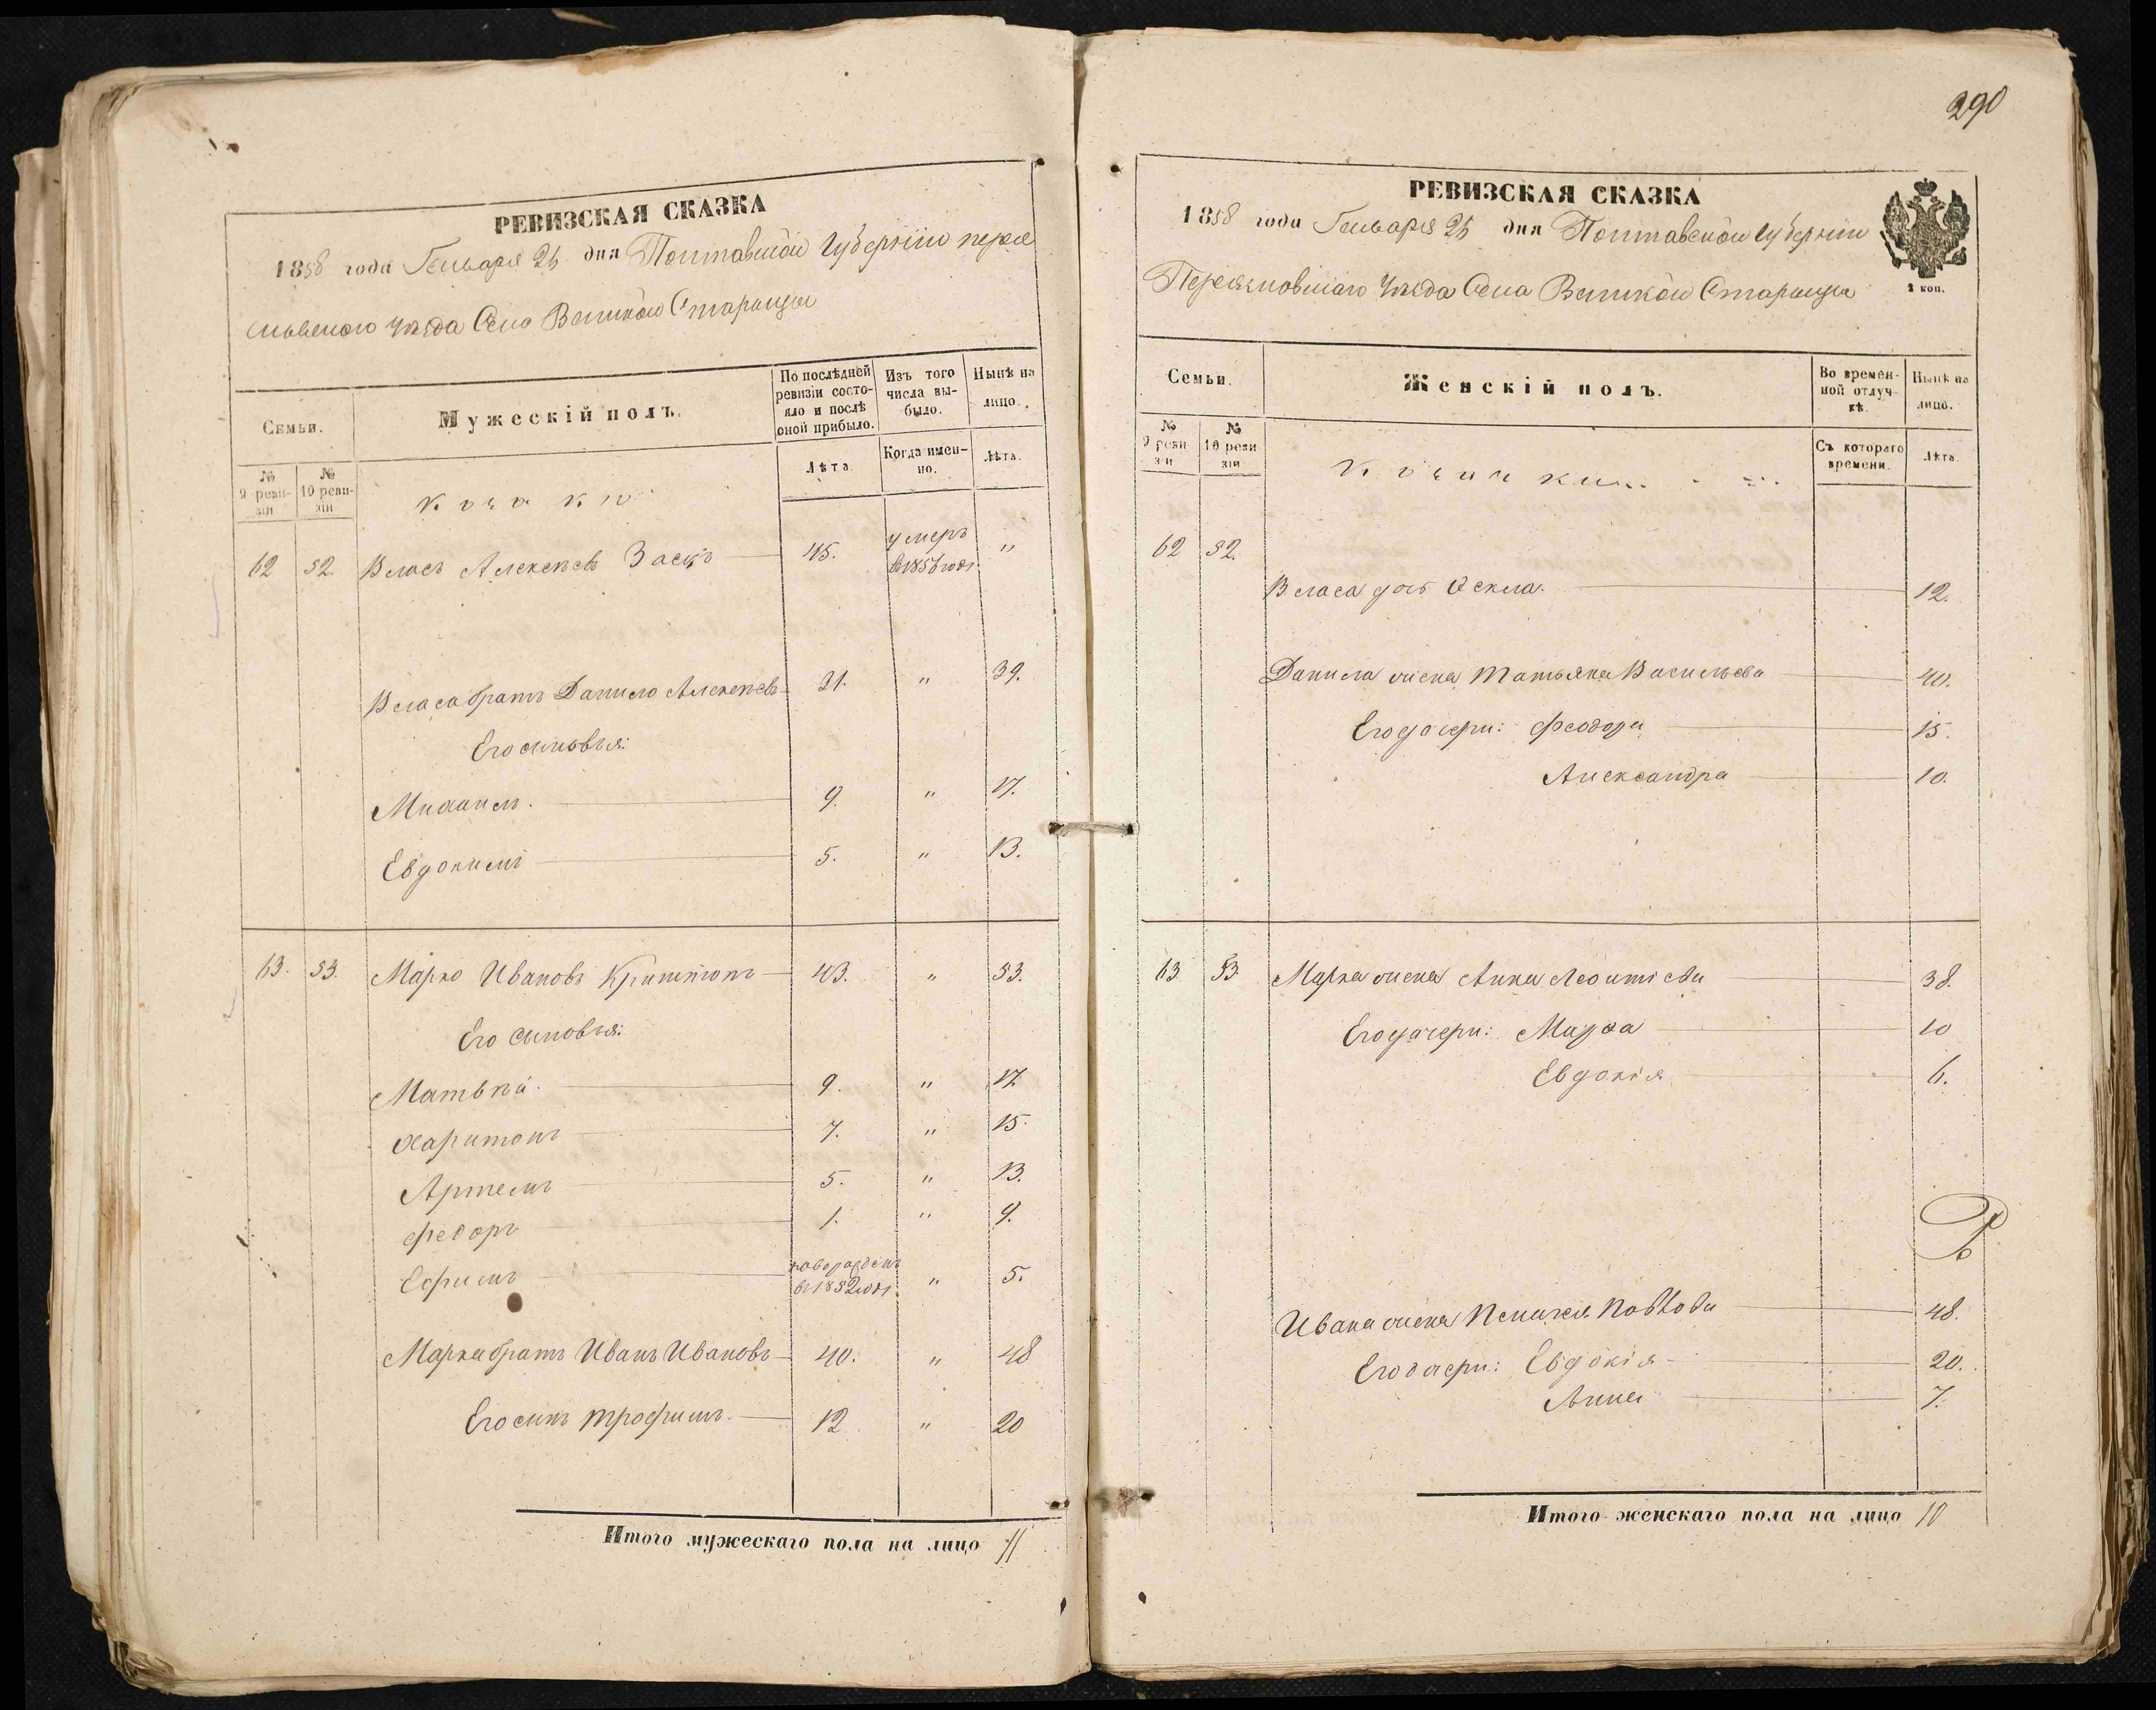 290
РЕВИЗСКАЯ СКАЗКА
1858 года Генваря 25 дня Полтавской Губернiи перея
славского уезда Села Великой Старицы
Семьи.
Мужескiй полъ.
По послѣдней ревизiи состояло и послѣ оной прибыло.
Изъ того числа выбыло.
Нынѣ на лицо.
№ 9 ревизiи
№ 10 ревизiи
Козаки
Лѣта.
Когда именно.
Лѣта.
62 52. Власъ Алексѣевъ Заецъ 45. умеръ в 1856 годѣ "
Власа братъ Данило Алексѣевъ 31. " 39.
Его сыновья:
Михаилъ. 9. " 17.
Евдокимъ 5. " 13.
63. 53. Марко Ивановъ 43. " 53.
Его сыновья:
Матвѣй. 9. " 17.
Харитонъ 7. " 15.
Артемъ 5. " 13.
Федоръ 1. " 9.
Ефимъ новорожденъ в 1852 годѣ " 5.
Марка братъ Иванъ Ивановъ 40. " 48
Его сынъ Трофимъ. 12 " 20
Итого мужескаго пола на лицо 11
РЕВИЗСКАЯ СКАЗКА
1858 года Генваря 25 дня Полтавской Губернiи
Переяславского уезда Села Великой Старицы
2 коп.
Семьи.
Женскiй полъ.
Во временной отлучкѣ.
Нынѣ на лицо.
№ 9 ревизiи
№ 10 ревизiи
Съ котораго времени.
Лѣта.
62 52.
Власа дочь Фекла. 12.
Данила жена Татьяна Васильева 40.
Его дочери: Феодора 15.
Александра 10.
63 53 Марка жена Анна Леонтiева 38.
Его дочери: Марфа 10
Евдокiя 6.
Ивана жена 48.
Его дочери: Евдокiя 20.
Анна 7.
Итого женскаго пола на лицо 10